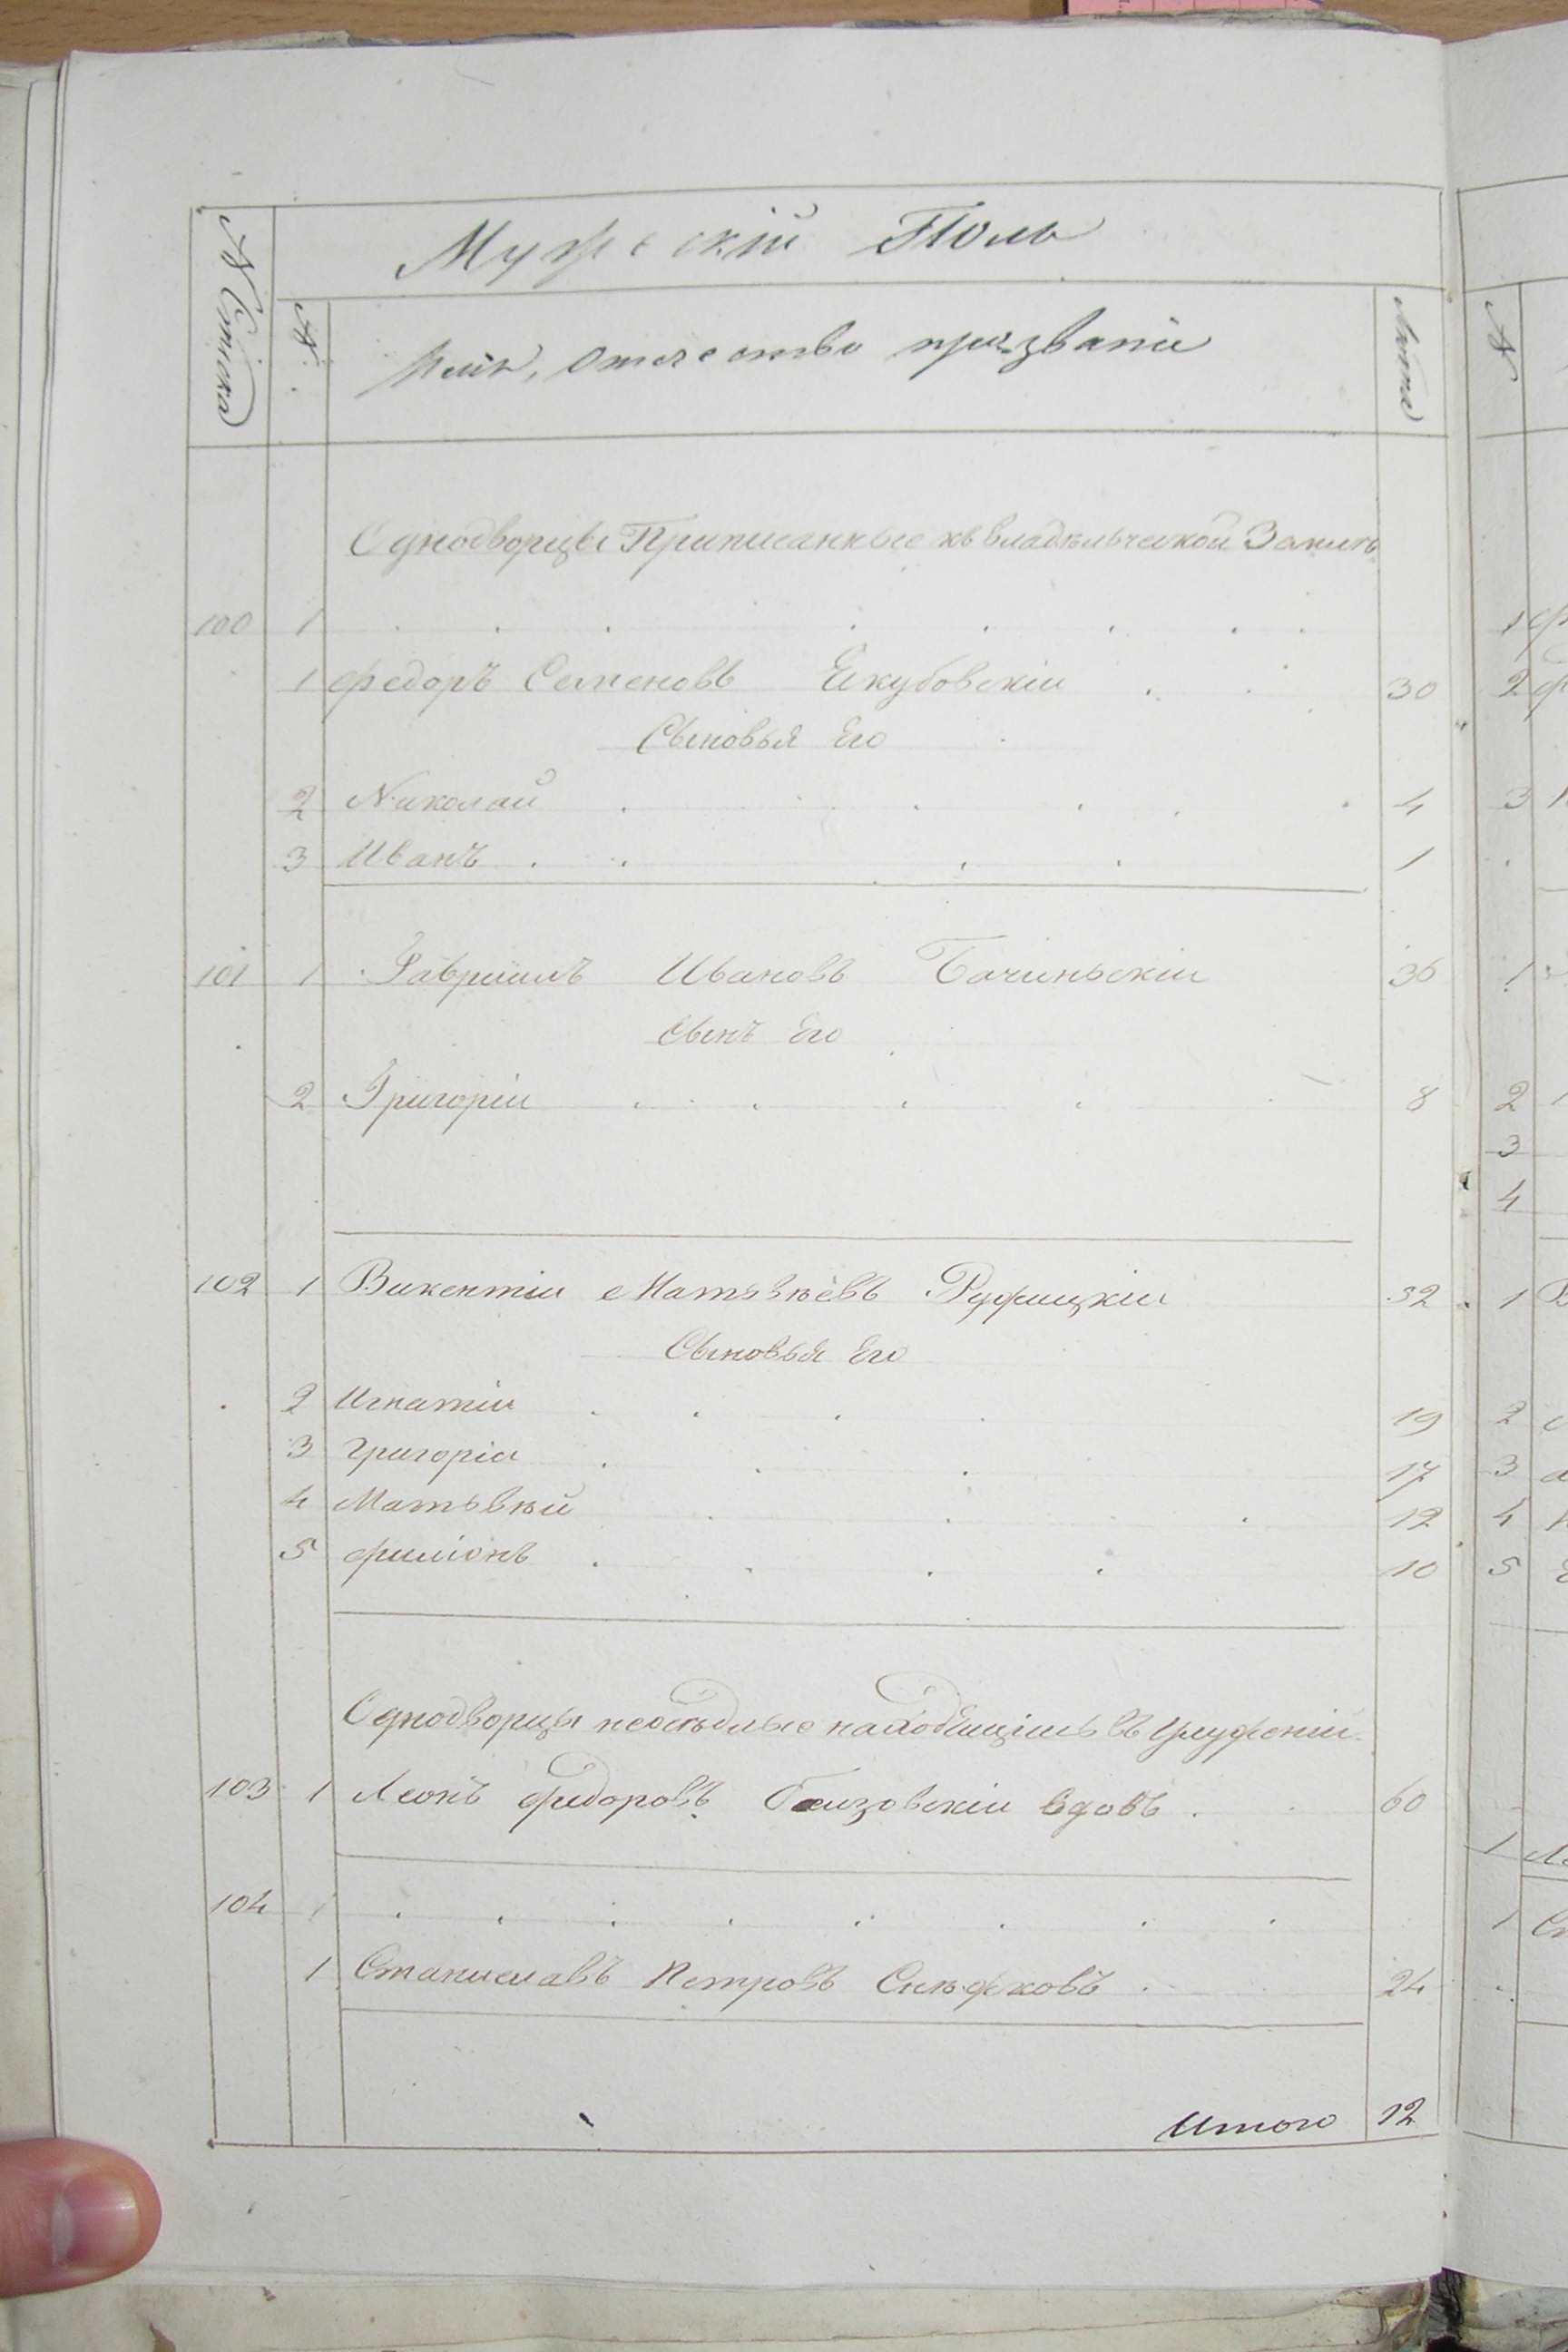 Мужескій Полъ
№ Списка
№
Имя, Отечество прозваніе
Лѣта
Однодворцы Приписанные къ владѣльческой Земли
100 1
1 Федоръ Семеновъ Екубовскіи 30
Сыновья Его
2 Николай 4
3 Иванъ 1
101 1 Гавріилъ Ивановъ Бачиньскіи 36
Сынъ Его
2 Григоріи 8
102 1 Викентіи Матвѣевъ 32
Сыновья Его
2 Игнатіи 19
3 Григоріи 17
4 Матьвѣй 12
5 Филіонъ 10
Однодворцы неосѣдлые находящіись въ Служеніи
103 1 Леонъ Федоровъ вдовъ 60
104 1
1 Станиславъ Петровъ Снѣжковъ 24
Итого 12